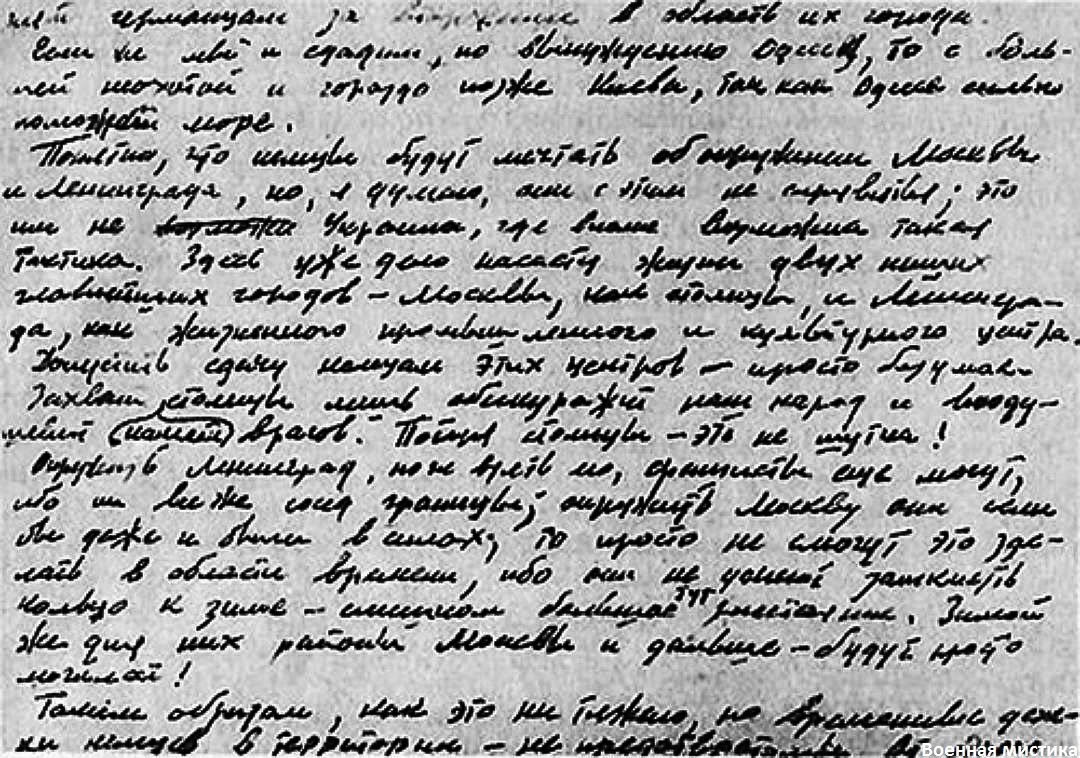 германцам за в область их города.
Если же мы и сдадим, по вынуждению Одессу, то с боль-
шей неохотой и гораздо позже Киева, так как Одессе сильно
поможет море.
Понятно, что немцы будут мечтать об окружении Москвы
и Ленинграда, но, я думаю, они с этим не справятся; это
им не Украина, где вполне возможна такая
тактика. Здесь уже дело касается жизни двух наших
главнейших городов – Москвы, как столицы, и Ленингра-
да, как жизненного промышленного и культурного центра.
Допустить сдачу немцам этих центров – просто безумие.
Захват столицы лишь обескуражит наш народ и вооду-
шевит (нашей) врагов. Потеря столицы – это не шутка!
Окружить Ленинград, но не взять его, фашисты еще могут,
ибо он все же сосед границы; окружить Москву они если
бы даже и были в силах, то просто не смогут это зде-
лать в области времени, ибо они не успеют замкнуть
кольцо к зиме – слишком большое тут расстояние. Зимой
же для них районы Москвы и дальше – будут просто
могилой!
Таким образом, как это ни тяжело, но временные
немцев в территории – не
Военная мистика